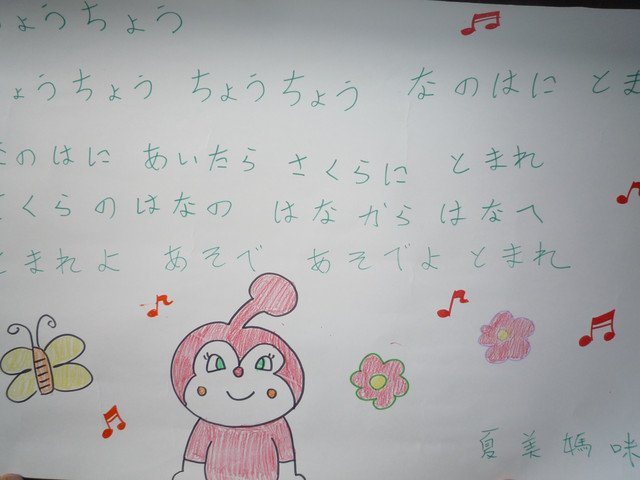 ちょうちょう
ょうちょう ちょうちょう なのはに とま
なのはに あいたら さくらに とまれ
さくらのはなの はながら はなへ
とまれよ あそで あそでよ とまれ
夏美媽咪